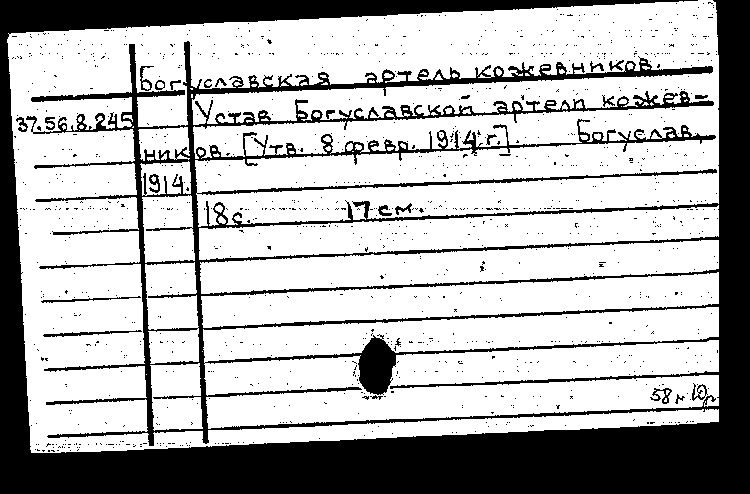 Богуславская артель кожевников.
37.56.8.245 Устав Богуславской артели кожев-
ников. [Утв. 8 февр. 1914 г.]. Богуслав,
1914.
18 с. 17 см.
58